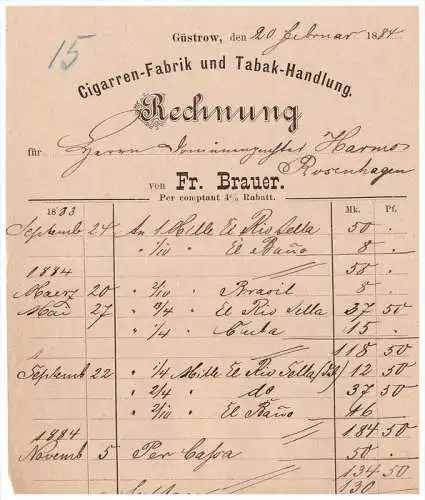 15
Güstrow, den 20 Februar 1884
Cigarren-Fabrik und Tabak-Handlung.
Rechnung
für Herrn Domänenpächter Harms
Rosenhagen
von Fr. Brauer.
Per comptant 4% Rabatt.
1883 Mk. Pf.
Septemb 24 An 1 Mille El Rio Sella 50 .
" 1/10 El Baño 8 .
1884 58 .
Maerz 20 " 2/10 Brasil 8 .
Mai 27 " El Rio Sella 37 50
" 1/4 Cuba 15 .
118 50
Septemb 22 " 1/4 Mille El Rio Sella 12 50
" 2/4 do 37 50
" 2/10 El Baño 16
1884 184 50
Novemb 5 Per Cassa 50 .
134 50
130